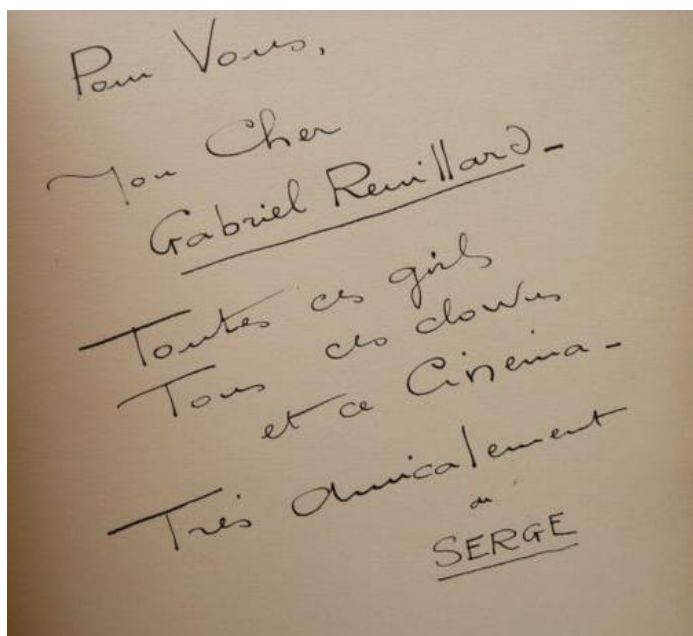 Pour Vous,
Mon Cher
Gabriel Reuillard -
Toutes ces girls
Tous ces clowns
et ce Cinema -
Très Amicalement
de
SERGE